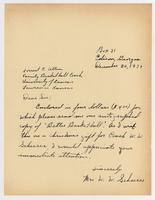 Box 31
Edison, Georgia
December 20, 1937
Forrest C. Allen
Varsity Basketball Coach
University of Kansas
Lawrence Kansas
Dear Sir:
Enclosed is four dollars ($4.00) for
which please send me one autographed
copy of "Better Basketball". As I wish
this as a Christmas gift for Coach W. W.
I would appreciate your
immediate attention.
Sincerely,
Mrs. W. W.